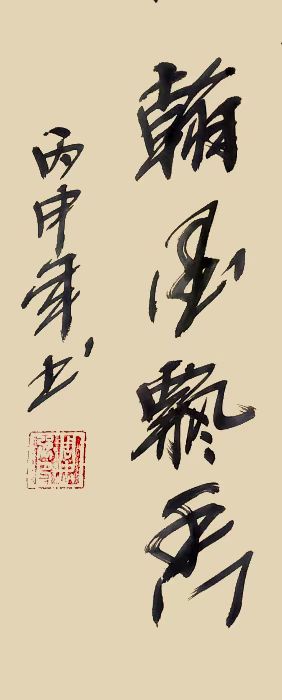 翰墨飘香
丙申年书